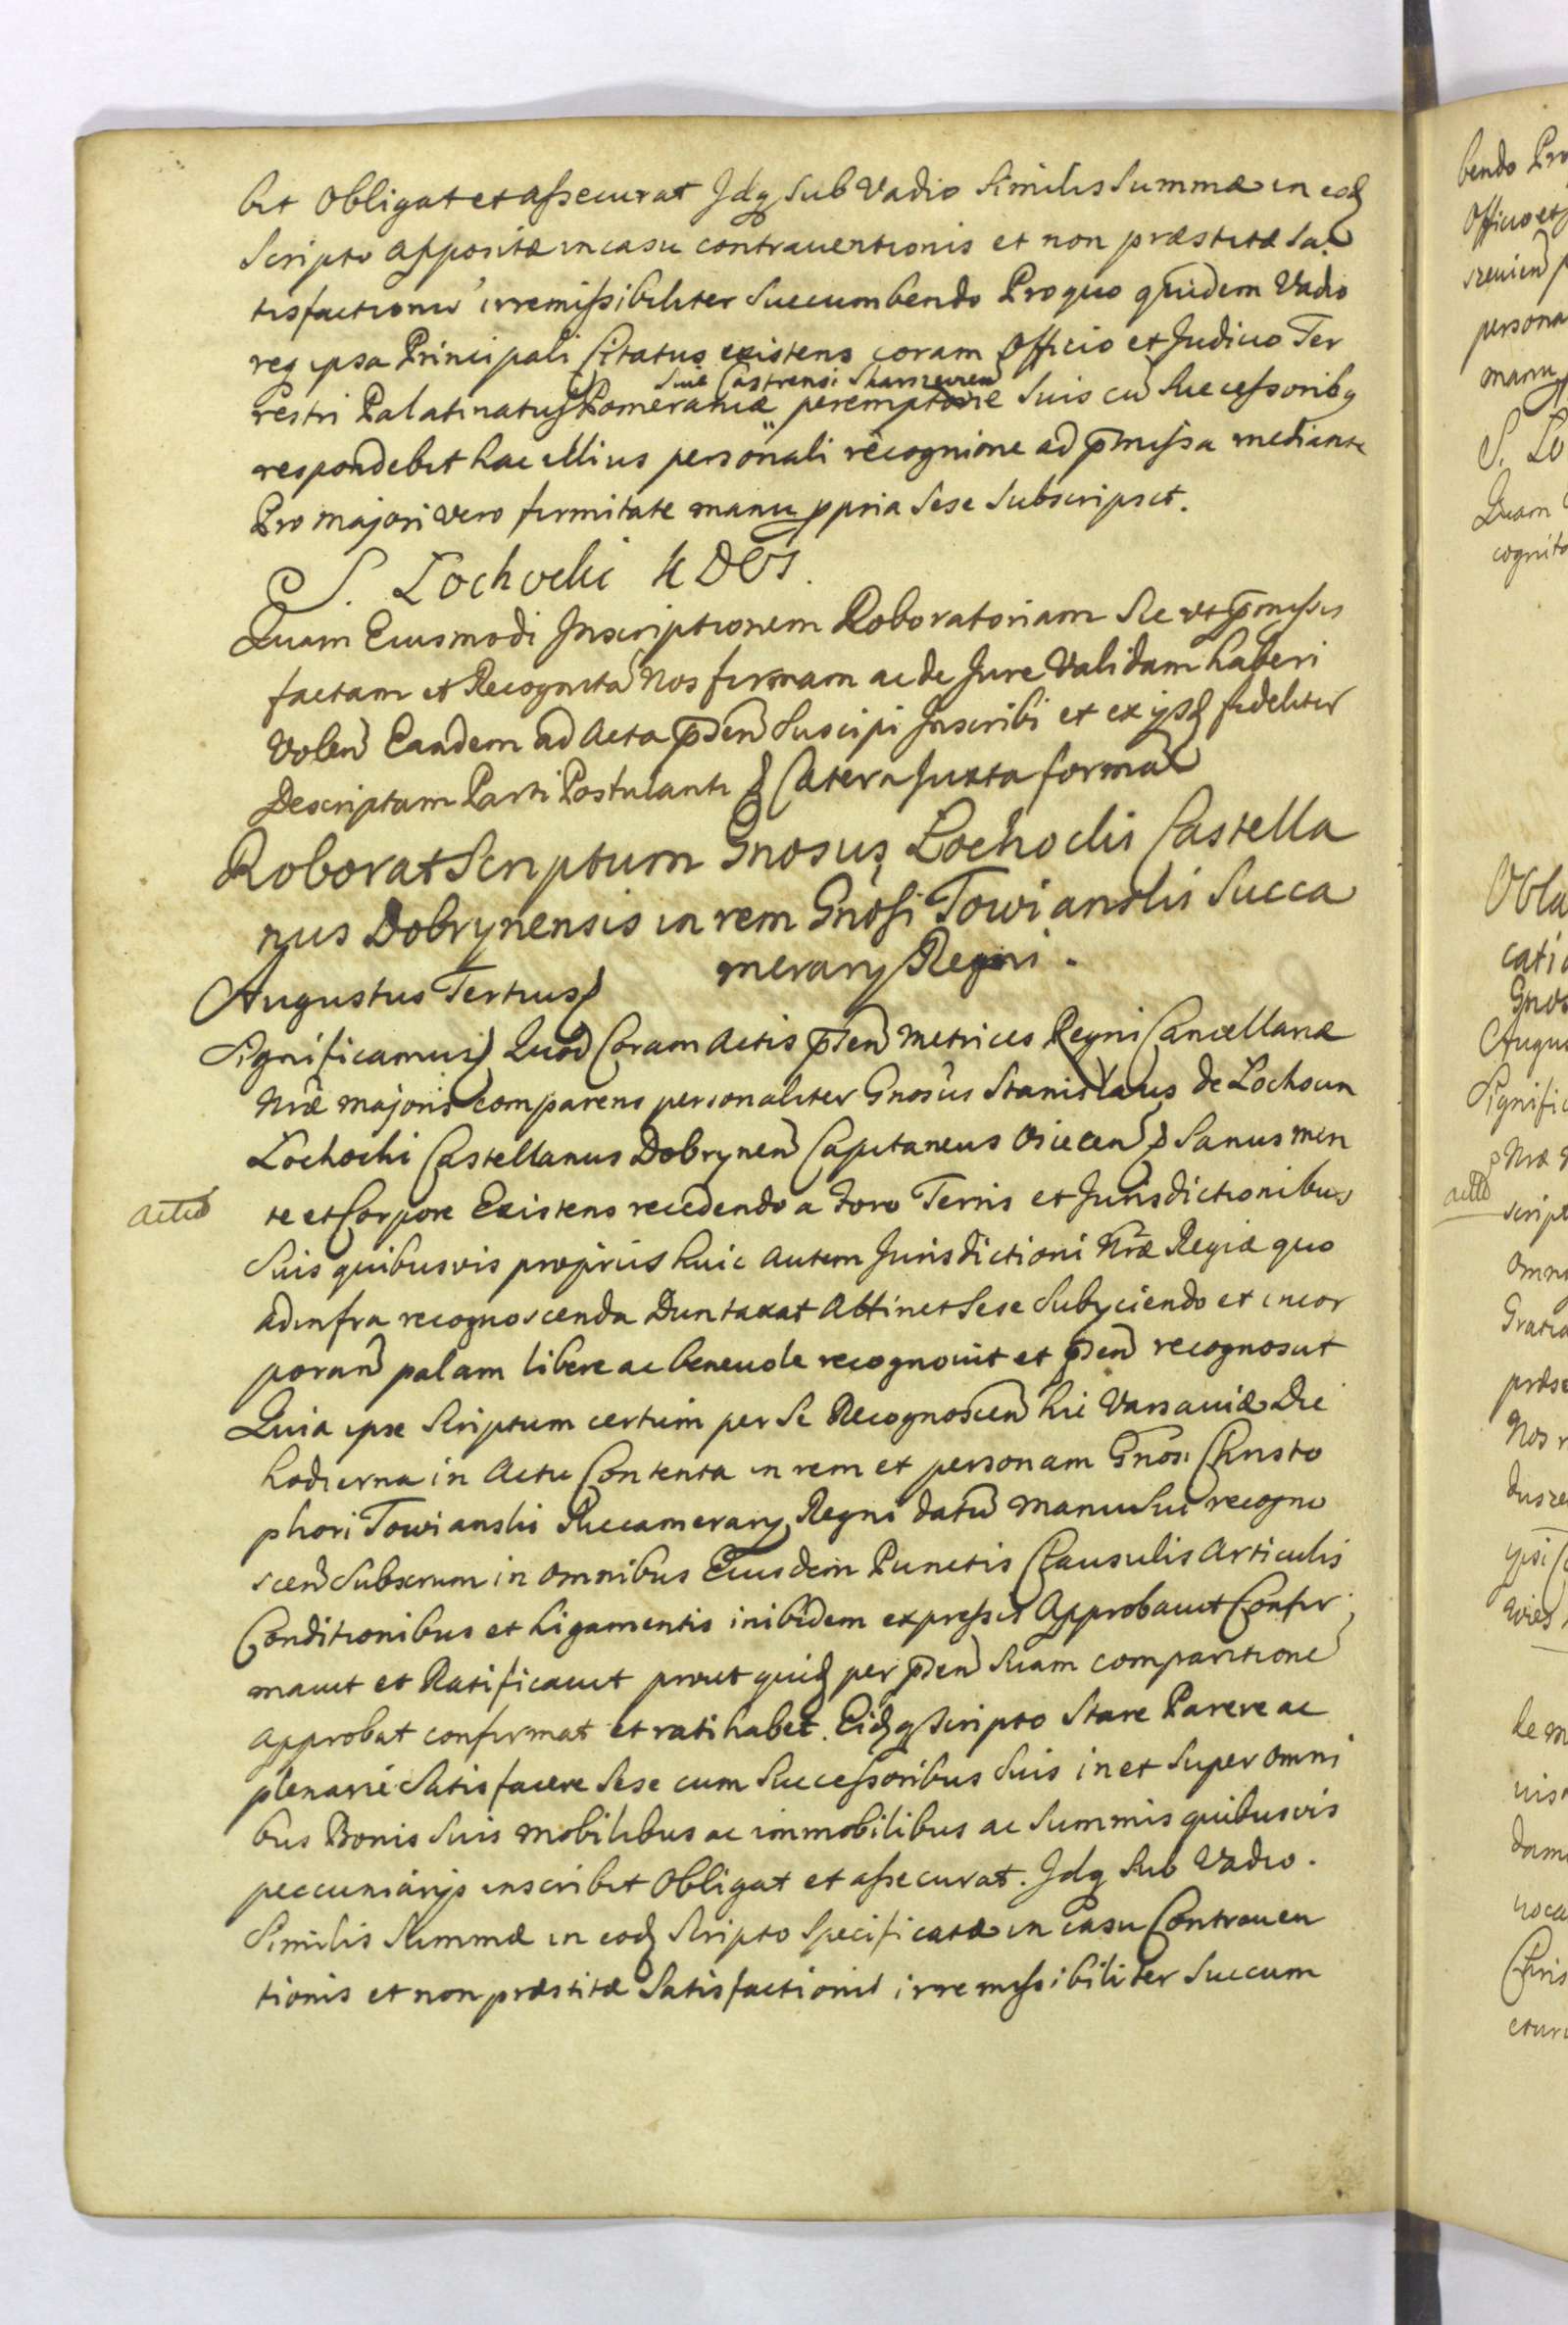 bit Obligat et assecurat Jdq sub Vadio Similis Summæ in eod
Scripto Appositæ in casu contrauentionis et non præstitæ Sa
tisfactionis irremissibiliter Succumbendo Pro quo quidem Vadio
req ipsa Principali Citatus existens coram Officio et Judicio Ter
Siue Castrensi Skarszeuien
restri Palatinatus Pomeraniæ peremptorie Suis cu Successoribq
respondebit hac illius personali recognine ad pmissa mediante
Pro majori vero firmitate manu ppria Sese Subscripsit.
S. Lochocki K D O S.
Quam Eiusmodi Jnscriptionem Roboratoriam Sic ut pmissis
factam et Recognita Nos firmam ac de Jure Validam haberi
Volen Eandem ad Acta pden Suscipi Jnscribi et ex ijsd fideliter
Descriptam Parti Postulanti Cætera Juxta forma
Roborat Scriptum Gnosus Lochocki Castella
nus Dobrynensis in rem Gnosi Towianski Succa
merarij Regni.
Augustus Tertius
Significamus Quod Coram Actis pden Metrices Regni Cancellariæ
Nræ majoris comparens personaliter Gnosus Stanislaus de Lochocin
Lochocki Castellanus Dobrynen Capitaneus Osiecen Sanus men
actio
te et Corpore Existens recedendo a Foro Terris et Jurisdictionibus
Suis quibusvis propriis huic autem Jurisdictioni Nræ Regiæ quo
ad infra recognoscenda Duntaxat Attinet Sese Subijciendo et incor
poran palam libere ac beneuole recognouit et pden recognoscit
Quia ipse Scriptum certum per Se Recognoscen hic Varsauiæ Die
hodierna in Actu Contenta in rem et personam Gnosi Christo
phori Towianski Succamerarij Regni datu manu Sui recogno
scen Subscrum in omnibus Eiusdem Punctis Clausulis Articulis
Conditionibus et Ligamentis inibidem expressis Approbauit Confir
mauit et Ratificauit prout quid per pden Suam comparitione
Approbat confirmat et ratihabet. Eidq Scripto Stare Parere ac
plenarie Satisfacere Sese cum Successoribus Suis in et Super Omni
bus Bonis Suis Mobilibus ac immobilibus ac Summis quibusvis
peccuniarijs inscribit Obligat et assecurat. Jdq Sub Vadio.
Similis Summæ in eod Scripto Specificatæ in casu Contrauen
tionis et non præstitæ Satisfactionis irremissibiliter Succum
bendo Pro
Officio et
persona
manu
S. Lo
Quam
cognita
Obla
catio
Gnos
Augu
Signific
Nræ
actio
script
omni
Gratia
præse
Nos
dam
Chris